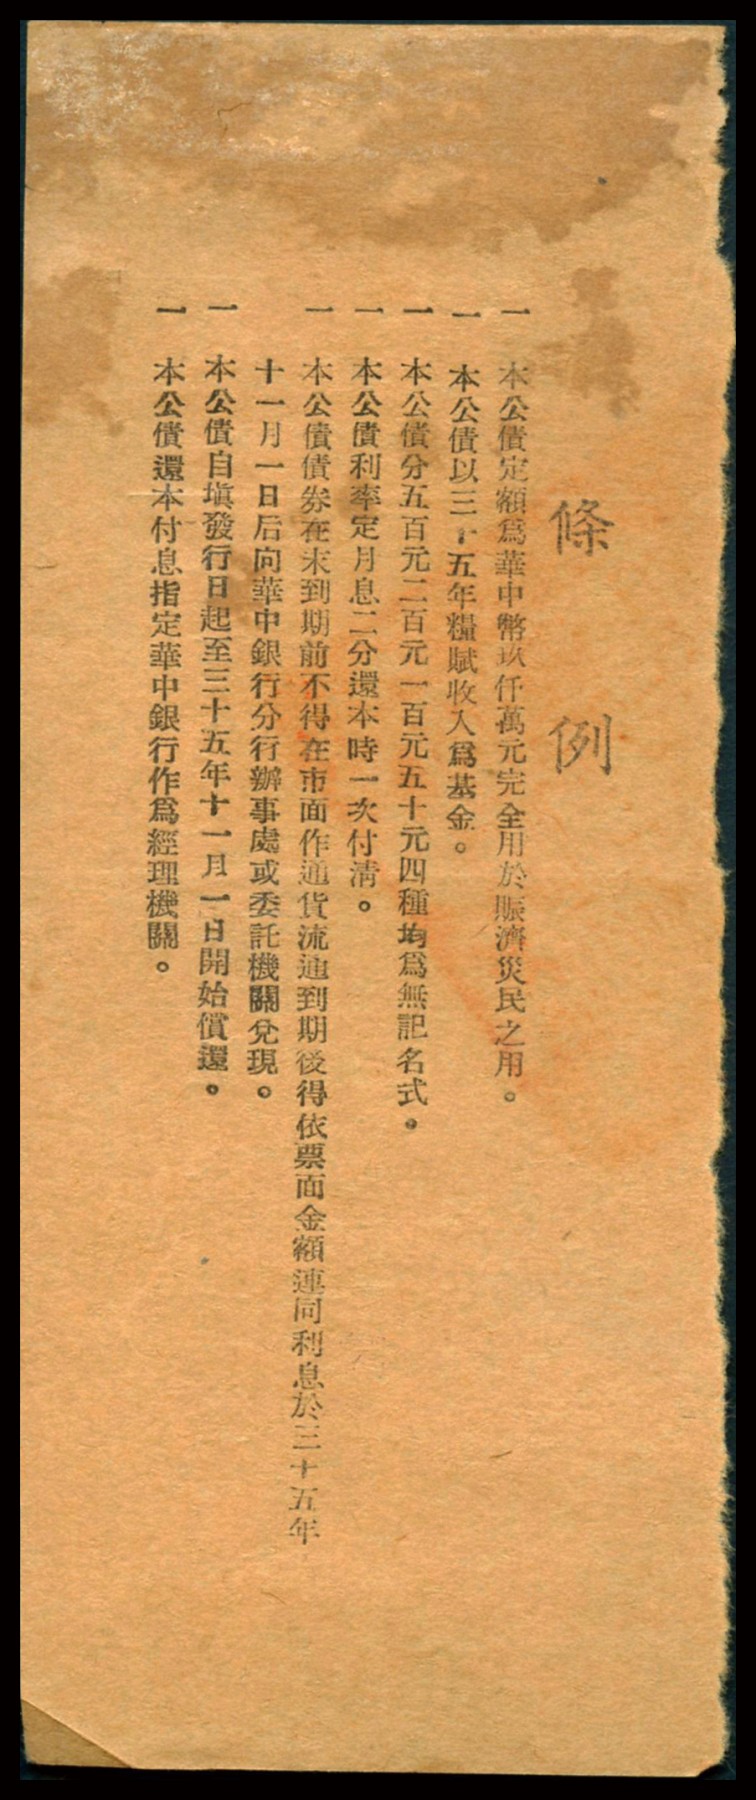 條例
一 本公債定額爲華中幣玖仟萬元完全用於賑濟災民之用。
一 本公債以三十五年糧賦收入爲基金。
一 本公債分五百元二百元一百元五十元四種均爲無記名式。
一 本公債利率定月息二分還本時一次付清。
一 本公債債券在未到期前不得在市面作通貨流通到期後得依票面金額連同利息於三十五年
十一月一日后向華中銀行分行辦事處或委託機關兌現。
一 本公債自塡發行日起至三十五年十一月一日開始償還。
一 本公債還本付息指定華中銀行作爲經理機關。